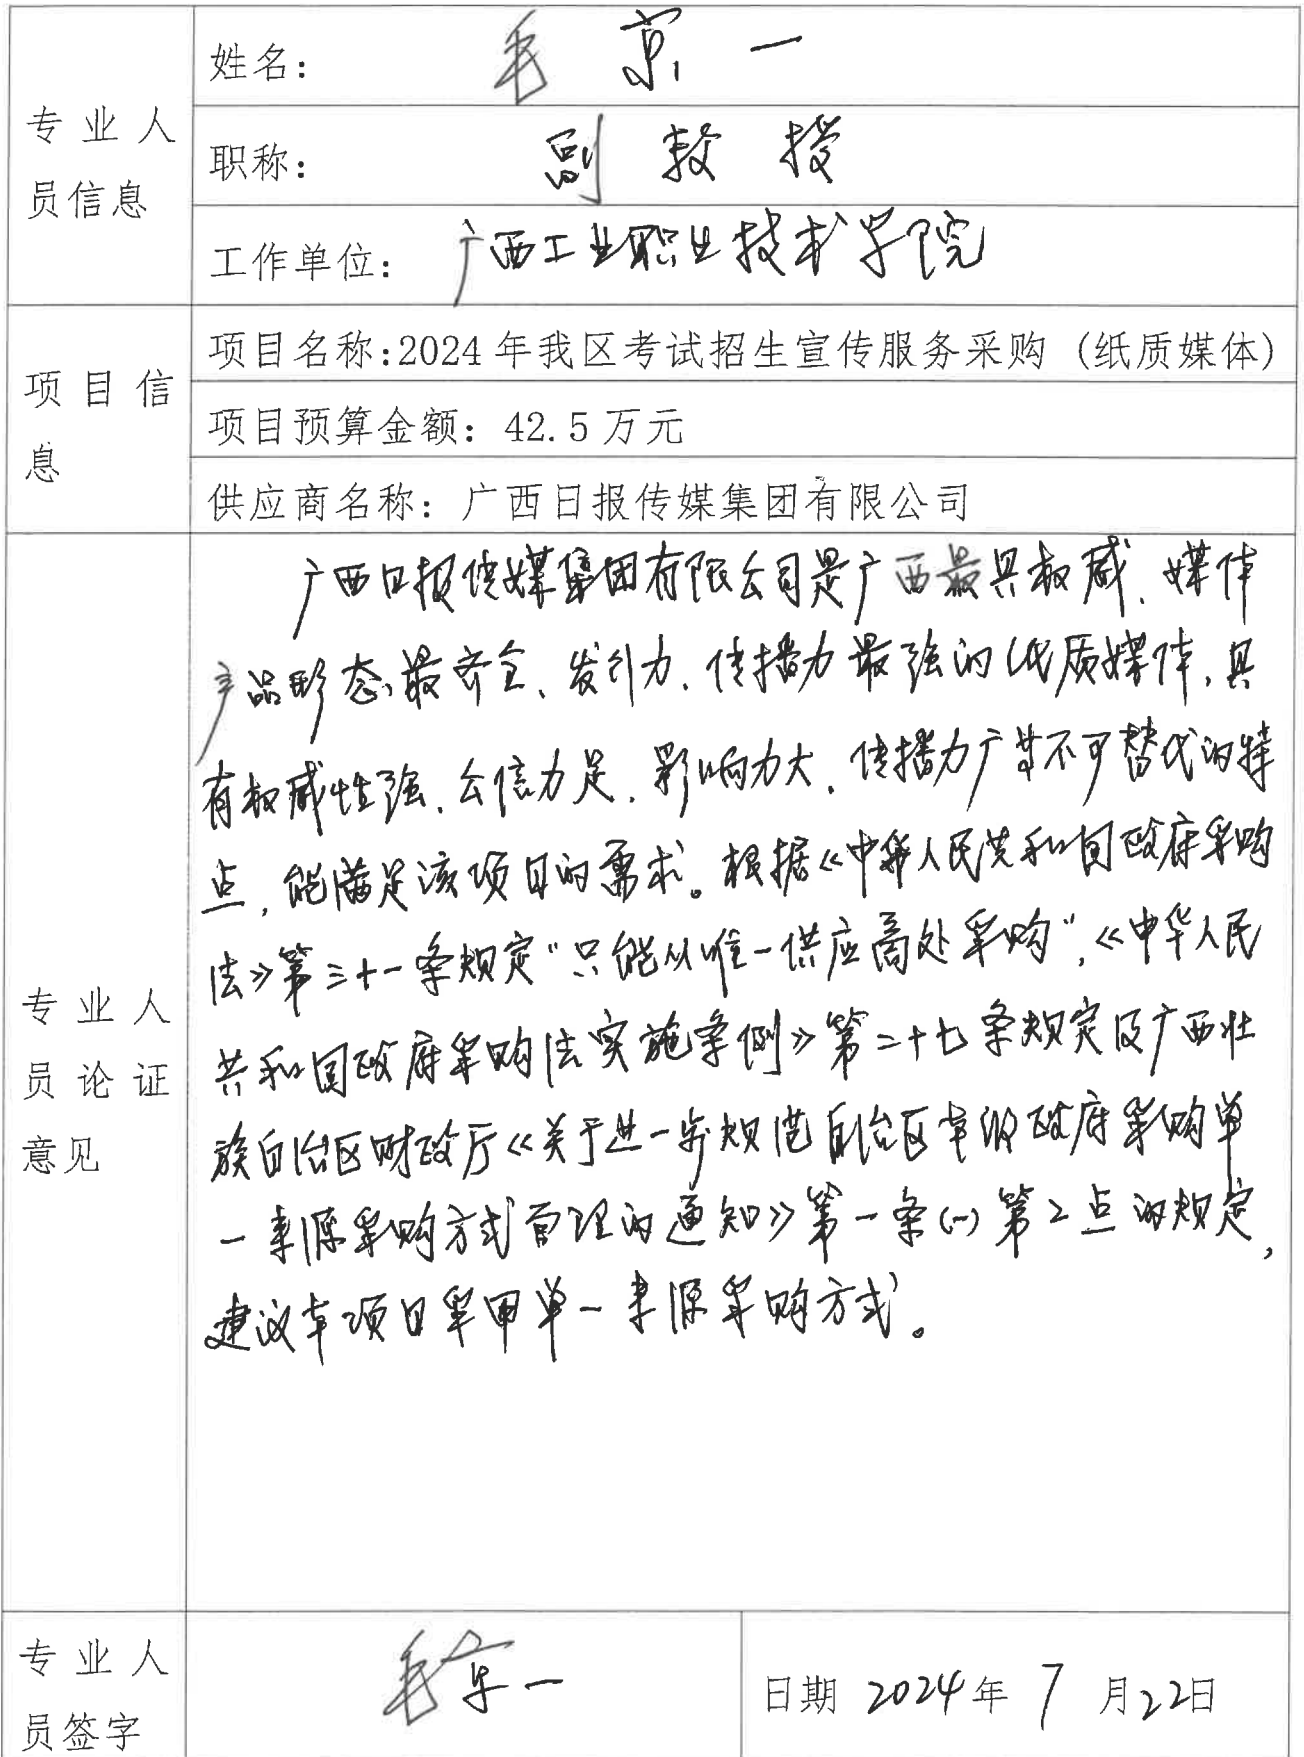 专业人
员信息
姓名：毛京一
职称：副教授
工作单位：广西工业职业技术学院
项目信
息
项目名称:2024年我区考试招生宣传服务采购（纸质媒体）
项目预算金额：42.5万元
供应商名称：广西日报传媒集团有限公司
专业人
员论证
意见
广西日报传媒集团有限公司是广西最具权威、媒体
产品形态最齐全、发引力、传播力最强的纸质媒体，具
有权威性强、公信力足、影响力大、传播力广等不可替代的特
点，能满足该项目的需求。根据《中华人民共和国政府采购
法》第三十一条规定“只能从唯一供应商处采购”，《中华人民
共和国政府采购法实施条例》第二十七条规定及广西壮
族自治区财政厅《关于进一步规范自治区本级政府采购单
一来源采购方式管理的通知》第一条(一)第2点的规定，
建议本项目采用单一来源采购方式。
专业人
员签字
毛京一
日期 2024年 7月22日